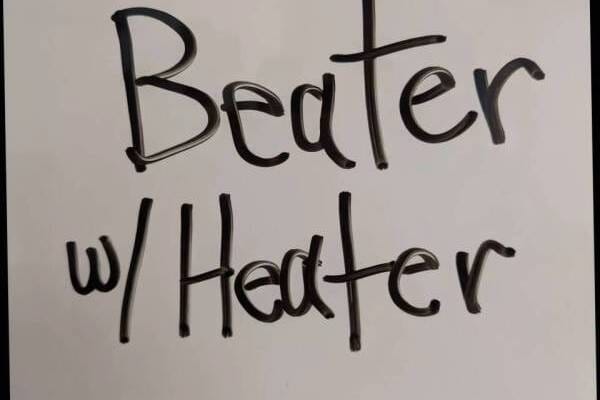 Beater
w/ Heater